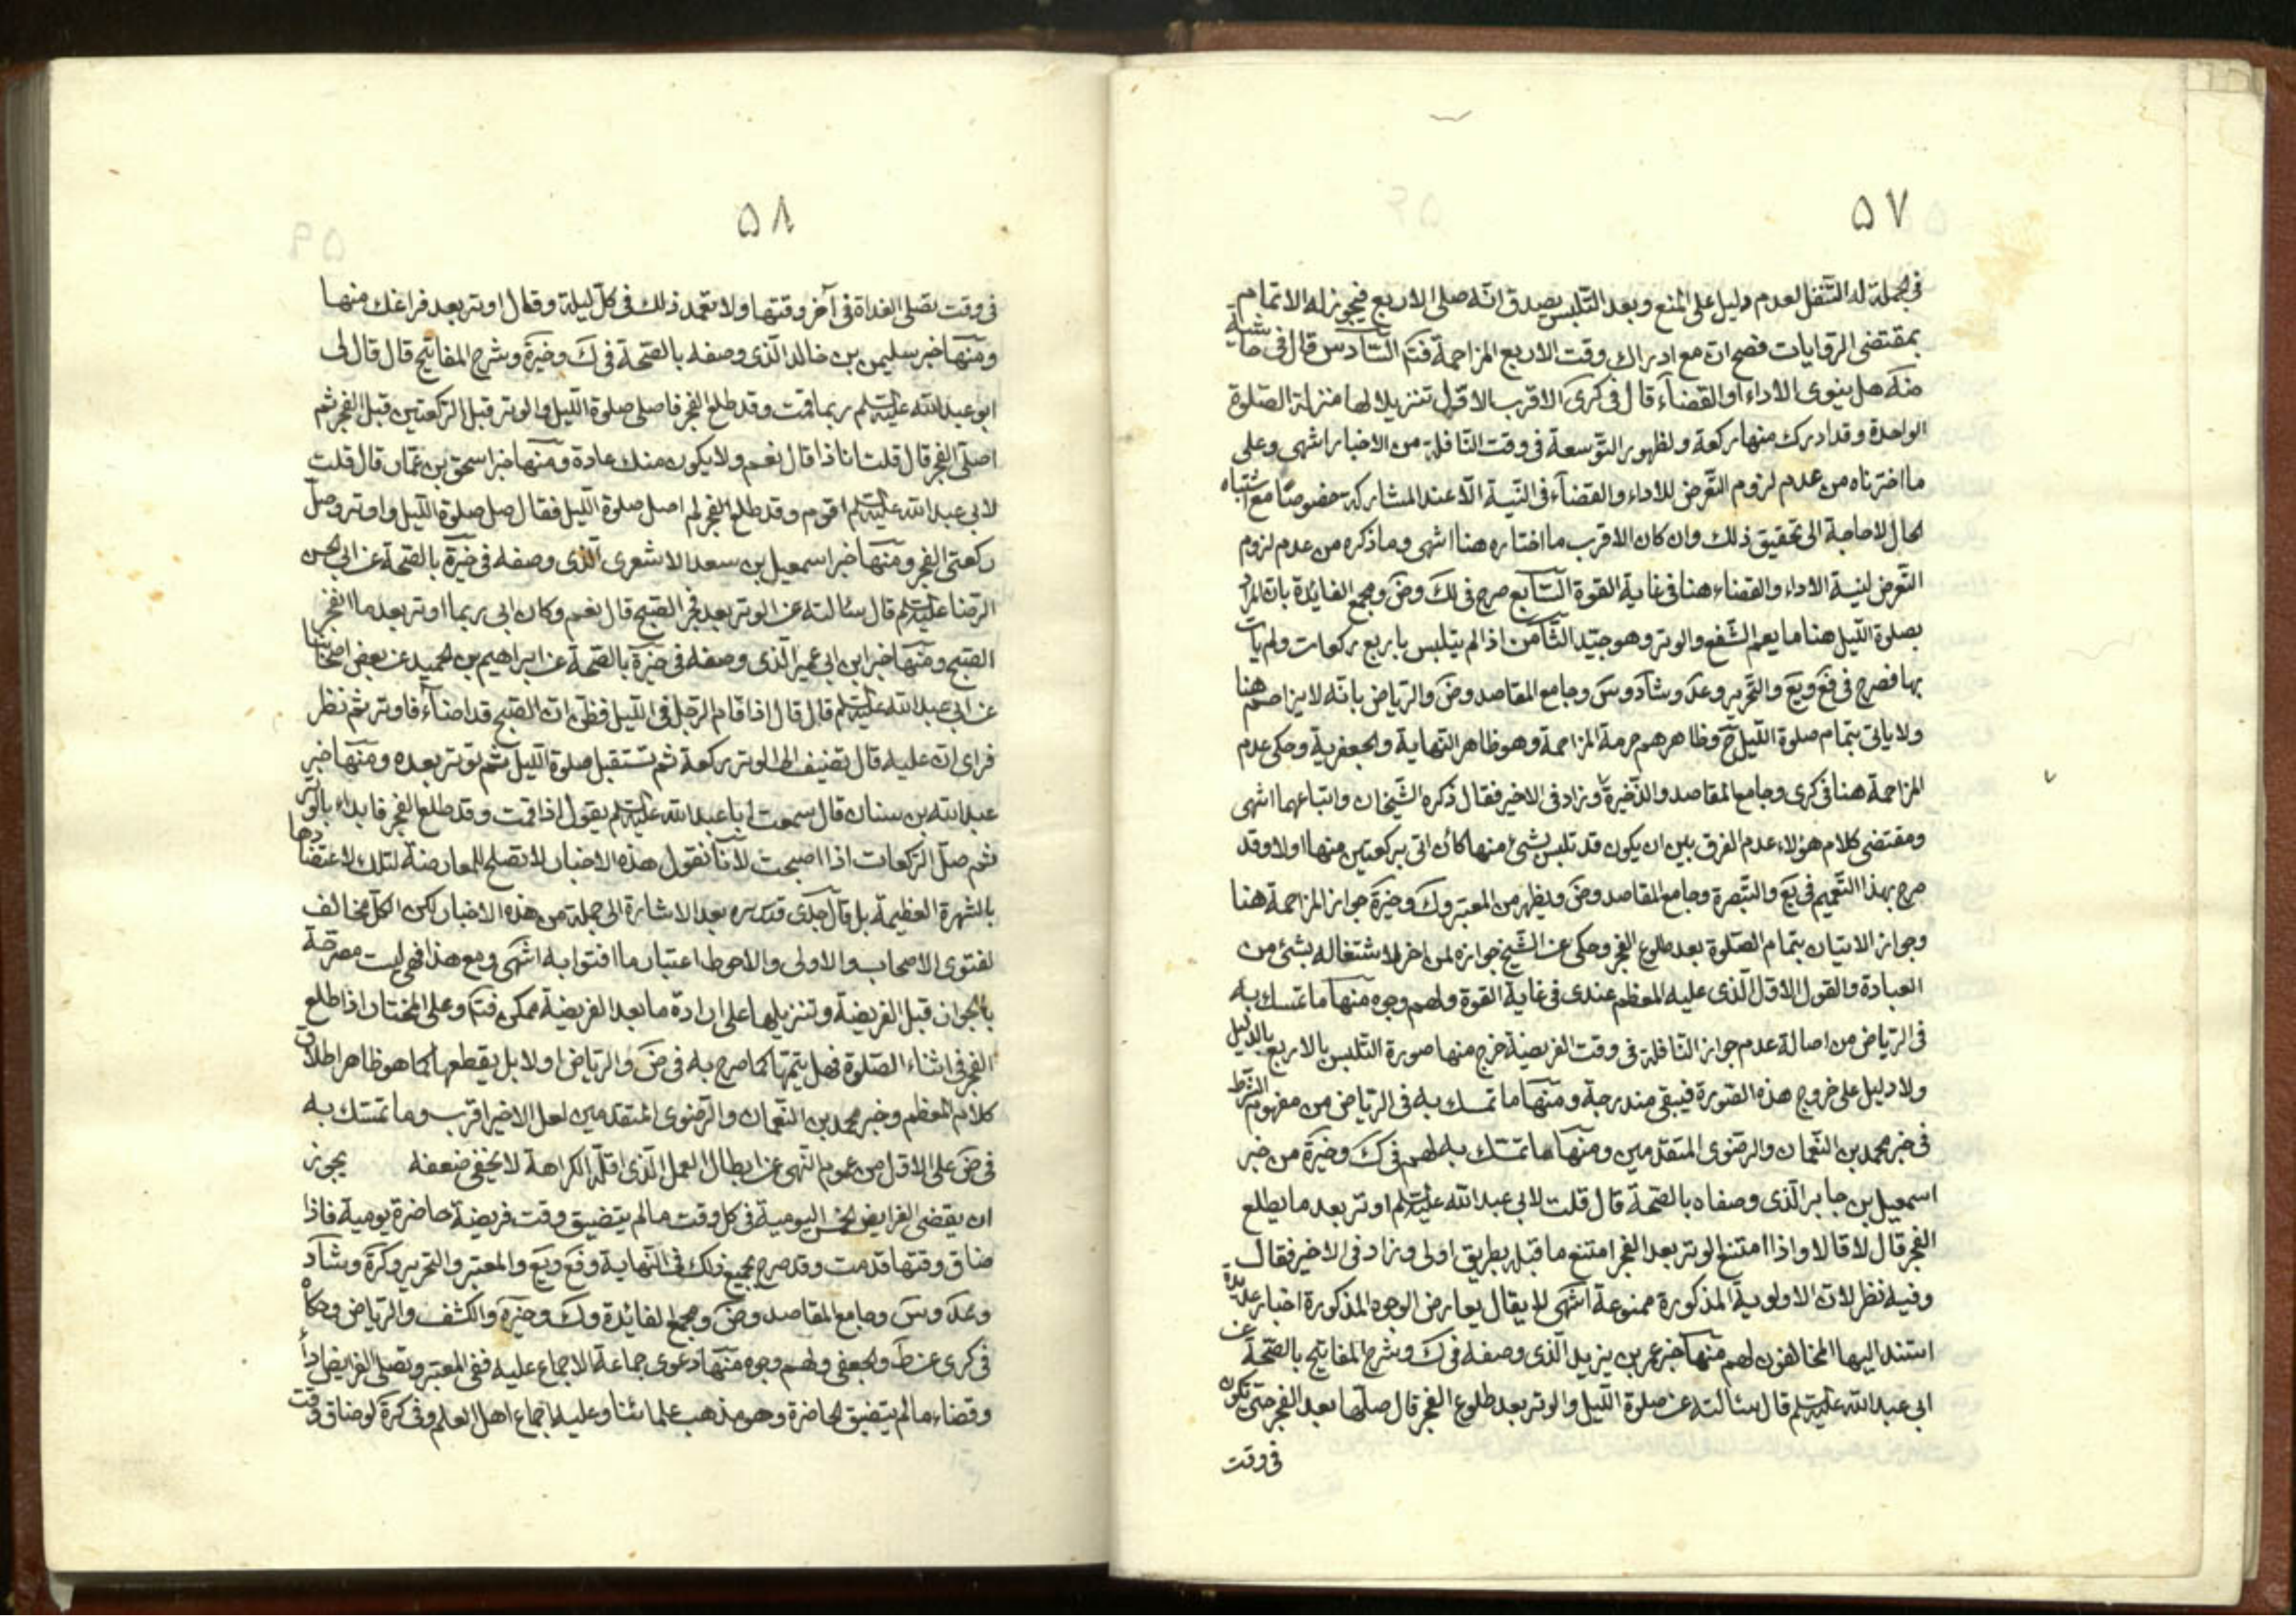 ٥٧
في الجملة له التنفل لعدم دليل على المنع وبعد التلبس يصدق انه صلى الاربع فيجوز له الاتمام
بمقتضى الروايات فصح ان مع ادراك وقت الاربع المزاحمة فتم السادس قال في حاشية
ضه هل ينوى الاداء او القضاء قال في كرى الاقرب الاول تنزيلا لها منزلة الصلوة
الواحدة وقد ادرك منها ركعة ولظهور التوسعة في وقت النافلة من الاخبار انتهى وعلى
ما اخترناه من عدم لزوم التعرض للاداء والقضاء في النية الا عند المشاركة خصوصا مع اشتباه
الحال لا حاجة الى تحقيق ذلك وان كان الاقرب ما اختاره هنا انتهى وما ذكره من عدم لزوم
التعرض لنية الاداء والقضاء هنا في غاية القوة السابع صرح في لك وض ومجمع الفائدة بان المراد
بصلوة الليل هنا ما يعم الشفع والوتر وهو جيد الثامن اذا لم يتلبس باربع ركعات ولم يات
بها فصرح في فع ويع والتحرير وعد وشاد وس وجامع المقاصد وض والرياض بانه لا يزاحم هنا
ولا ياتي بتمام صلوة الليل ح وظاهرهم حرمة المزاحمة وهو ظاهر النهاية والجعفرية وحكى عدم
المزاحمة هنا في كرى وجامع المقاصد والذخيرة وزاد في الاخير فقال ذكره الشيخان واتباعهما انتهى
ومقتضى كلام هؤلاء عدم الفرق بين ان يكون قد تلبس بشئ منها كان اتى بركعتين منها اولا وقد
صرح بهذا التعميم في يع والتبصرة وجامع المقاصد وض ويظهر من المعتبر وك وخيرة جواز المزاحمة هنا
وجواز الاتيان بتمام الصلوة بعد طلوع الفجر وحكى عن الشيخ جوازه لمن اخر لاشتغاله بشئ من
العبادة والقول الاول الذى عليه المعظم عندى في غاية القوة ولهم وجوه منها ما تمسك به
في الرياض من اصالة عدم جواز النافلة في وقت الفريضة خرج منها صورة التلبس بالاربع بالدليل
ولا دليل على خروج هذه الصورة فيبقى مندرجة ومنها ما تمسك به في الرياض من مفهوم الشرط
في خبر محمد بن النعمان والرضوى المتقدمين ومنها ما تمسك به لهم في ك وخيرة من خبر
اسمعيل بن جابر الذى وصفاه بالصحة قال قلت لابي عبد الله عليه السلم اوتر بعد ما يطلع
الفجر قال لا قالا واذا امتنع الوتر بعد الفجر امتنع ما قبله بطريق اولى وزاد في الاخير فقال
وفيه نظر لان الاولوية المذكورة ممنوعة انتهى لا يقال يعارض الوجوه المذكورة اخبار عديدة
استند اليها المخالفون لهم منها خبر عمر بن يزيد الذى وصفه في ك وشرح المفاتيح بالصحة عن
ابى عبد الله عليه السلم قال سئالته عن صلوة الليل والوتر بعد طلوع الفجر قال صلها بعد الفجر حتى تكون
في وقت
٥٨
في وقت تصلى الغداة في آخر وقتها ولا تعمد ذلك في كل ليلة وقال اوتر بعد فراغك منها
ومنها خبر سليمن بن خالد الذى وصفه بالصحة في ك وخيرة وشرح المفاتيح قال قال لى
ابو عبد الله عليه السلم ربما قمت وقد طلع الفجر فاصلى صلوة الليل والوتر قبل الركعتين قبل الفجر ثم
اصلى الفجر قال قلت انا ذا قال نعم ولا يكون منك عادة ومنها خبر اسحق بن عمار قال قلت
لابي عبد الله عليه السلم اقوم وقد طلع الفجر لم اصل صلوة الليل فقال صل صلوة الليل واوتر وصل
ركعتى الفجر ومنها خبر اسمعيل بن سعد الاشعرى الذى وصفه في خيرة بالصحة عن ابى الحسن
الرضا عليه السلم قال سئالته عن الوتر بعد فجر الصبح قال نعم وكان ابى ربما اوتر بعد ما انفجر
الصبح ومنها خبر ابن ابى عمير الذى وصفه في خيرة بالصحة عن ابراهيم بن عبد الحميد عن بعض اصحابنا
عن ابى عبد الله عليه السلم قال قال اذا قام الرجل في الليل فظن ان الصبح قد اضاء فاوتر ثم نظر
فراى ان عليه قال يضيف الى الوتر ركعة ثم تستقبل صلوة الليل ثم يوتر بعده ومنها خبر
عبد الله بن سنان قال سمعت ابا عبد الله عليه السلم يقول اذا قمت وقد طلع الفجر فابداء بالوتر
ثم صل الركعات اذا اصبحت لانا نقول هذه الاخبار لا تصلح للمعارضة لتلك لاعتضادها
بالشهرة العظيمة بل قال جدى قدس سره بعد الاشارة الى جملة من هذه الاخبار لكن الكل مخالف
لفتوى الاصحاب والاولى والاحوط اعتبار ما افتوا به انتهى ومع هذا فهى ليست مصرحة
بالجواز قبل الفريضة وتنزيلها على ارادة ما بعد الفريضة ممكن فتم وعلى المختار اذا طلع
الفجر في اثناء الصلوة فهل يتمها كما صرح به في ض والرياض او لا بل يقطعها كما هو ظاهر اطلاق
كلام المعظم وخبر محمد بن النعمان والرضوى المتقدمين لعل الاخير اقرب وما تمسك به
في ض على الاول من عموم النهى عن ابطال العمل الذى اقله الكراهة لا يخفى ضعفه يجوز
ان يقضى الفرايض الخمس اليومية في كل وقت ما لم يتضيق وقت فريضة حاضرة يومية فاذا
ضاق وقتها قدمت وقد صرح بجميع ذلك في النهاية وفع ويع والمعتبر والتحرير وكرة وشاد
وعد وس وجامع المقاصد وض ومجمع الفائدة وك وخيرة والكشف والرياض وحكاه
في كرى عن ط والجعفى ولهم وجوه منها دعوى جماعة الاجماع عليه ففى المعتبر وتصلى الفرايض اداءً
وقضاء ما لم يتضيق الحاضرة وهو مذهب علمائنا وعليه اجماع اهل العلم وفي كرة لو ضاق وقت